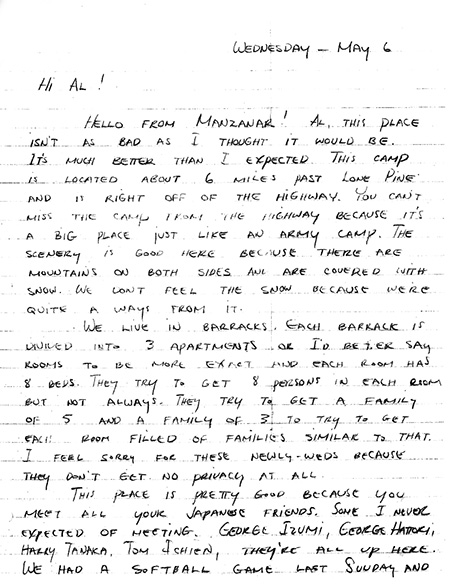 WEDNESDAY – MAY 6
HI AL!
HELLO FROM MANZANAR! AL, THIS PLACE
ISN'T AS BAD AS I THOUGHT IT WOULD BE.
IT'S MUCH BETTER THAN I EXPECTED. THIS CAMP
IS LOCATED ABOUT 6 MILES PAST LONE PINE
AND IS RIGHT OFF OF THE HIGHWAY. YOU CAN'T
MISS THE CAMP FROM THE HIGHWAY BECAUSE IT'S
A BIG PLACE JUST LIKE AN ARMY CAMP. THE
SCENERY IS GOOD HERE BECAUSE THERE ARE
MOUNTAINS ON BOTH SIDES AND ARE COVERED WITH
SNOW. WE DON'T FEEL THE SNOW BECAUSE WE'RE
QUITE A WAYS FROM IT.
WE LIVE IN BARRACKS. EACH BARRACK IS
DIVIDED INTO 3 APARTMENTS OR I'D BETTER SAY
ROOMS TO BE MORE EXACT AND EACH ROOM HAS
8 BEDS. THEY TRY TO GET 8 PERSONS IN EACH ROOM
BUT NOT ALWAYS. THEY TRY TO GET A FAMILY
OF 5 AND A FAMILY OF 3 TO TRY TO GET
EACH ROOM FILLED OF FAMILIES SIMILAR TO THAT.
I FEEL SORRY FOR THESE NEWLY-WEDS BECAUSE
THEY DON'T GET NO PRIVACY AT ALL.
THIS PLACE IS PRETTY GOOD BECAUSE YOU
MEET ALL YOUR JAPANESE FRIENDS. SOME I NEVER
EXPECTED OF MEETING. GEORGE IZUMI, GEORGE HATORI,
HARRY TANAKA, TOM ICHIEN, THEY'RE ALL UP HERE.
WE HAD A SOFTBALL GAME LAST SUNDAY AND